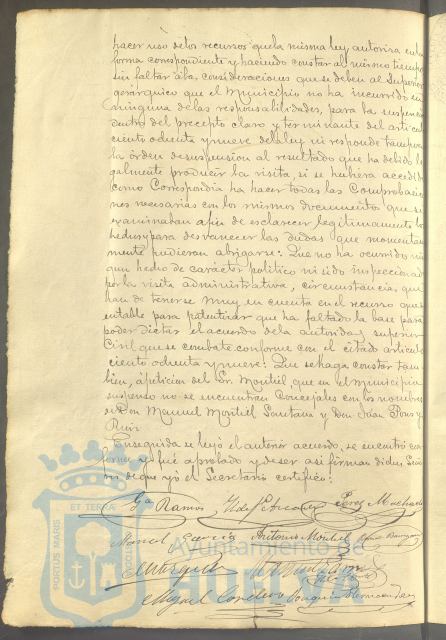 hacer uso de los recursos que la misma ley autoriza en la
forma correspondiente y haciendo constar al mismo tiempo
sin faltar á las consideraciones que se deben al Superior
gerárquico que el Municipio no ha incurrido en
ninguna de las responsabilidades, para la suspension
dentro del precepto claro y terminante del articulo
ciento ochenta y nueve de la ley ni responde tampoco
la órden de suspension al resultado que ha debido le
galmente producir la visita, si se hubiera accedido
como correspondia ha hacer todas las comprobacio
nes necesarias con los mismos documentos que se
examinaban afin de esclarecer legitimamente los
hechos y para desvanecer las dudas que momentanea
mente pudieran abrigarse: Que no ha ocurrido nin
gun hecho de carácter politico ni sido inspeccionado
por la visita administrativa, circunstancia, que
han de tenerse muy en cuenta en el recurso que se
entable para patentizar que ha faltado la base para
poder dictar el acuerdo de la autoridad superior
Civil que se combate conforme con el citado articulo
ciento ochenta y nueve: Que se haga constar tam
bien, á peticion del Sr. Montiel, que en el Municipio
suspenso no se encuentran Concejales con los nombres
de Don Manuel Montiel Santana y Don Juan Pons y
Ruiz.
Enseguida se leyó el anterior acuerdo, se encontró con
forme y fué aprobado y de ser asi firman dichos Seño
res de que yó el Secretario certifico:
Ga Ramos Perez Machado
Manuel Garcia Antonio Montiel
Miguel Cordero Joaquin Hernandez
PORTUS MARIS ET TERRAE CUSTODIA
Ayuntamiento de
HUELVA